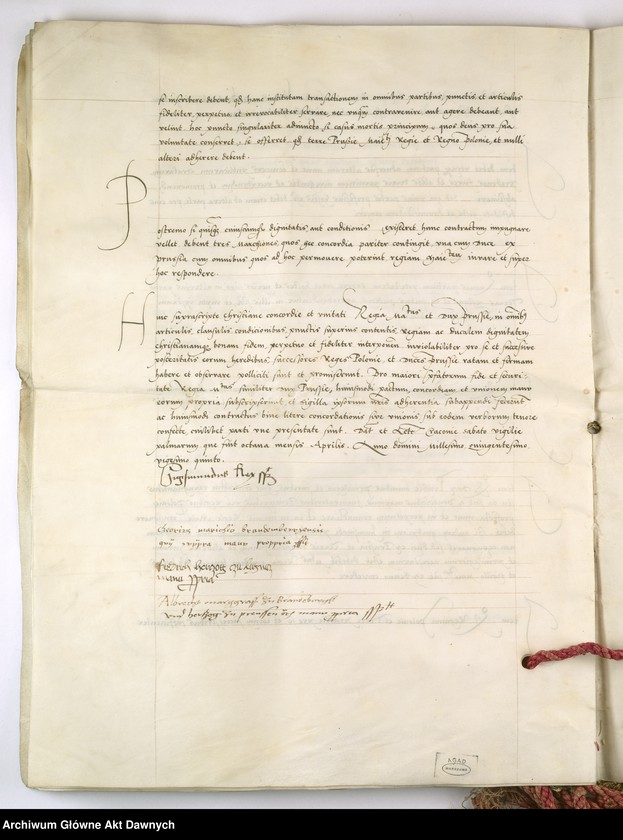 se inscribere debent, qd hanc institutam transactionem in omnibus partibus, punctis et articulis
fideliter, perpetuo et irrevocabiliter servare, nec unqm contravenire aut agere debeant aut
velint, hoc puncto singulariter adiuncto, si casus mortis principum, quos deus pro sua
voluntate conservet, se offerret, qd terre Prussie, Regie et Regno Polonie, et nulli
alteri adherere debent.
Postremo si cuiuscumqz dignitatis aut conditionis existeret, hunc contractum impugnare
vellet, debent tres Marchiones, quos hec concordia pariter contingit, una cum Duce ex
Prussia cum omnibus quos ad hoc permovere poterint, regiam Maiestatem iuvare et super
hoc respondere.
Huic suprascripte christiane concordie et unitati Regia Mtas et Dux Prussie, in omnibus
articulis, clausulis, conditionibus, punctis superius contentis, regiam ac ducalem dignitatem,
christianamqz bonam fidem, perpetuo et fideliter interponen. inviolabiliter pro se et successive
posteritatis eorum heredibus, successores Reges Polonie, et Duces Prussie ratam et firmam
habere et observare polliciti sunt et promiserunt. Pro maiori fide et securi-
tate Regia Mtas similiter Dux Prussie, huiusmodi pactum, concordiam et unionem manu
eorum propria subscripserunt, et sigilla ipsorum adherentia subappendi fecerunt
ac huiusmodi contractus bine litere concordationis sive unionis sub eodem verborum tenore
confecte, cuilibet parti une presentate sunt. Dat et Act Cracovie sabato vigilie
palmarum, que fuit octava mensis Aprilis. Anno domini millesimo quingentesimo
vigesimo quinto.
Sigismundus Rex sst
Georius marichio brandemburgensis
qui supra manu propria sst
Fridrich Hertzog zu
manu ppria
Albrecht marggraf zu Brandeburgk
und hertzog zu preussen manu ppria sspt
AGAD
WARSZAWA
Archiwum Główne Akt Dawnych